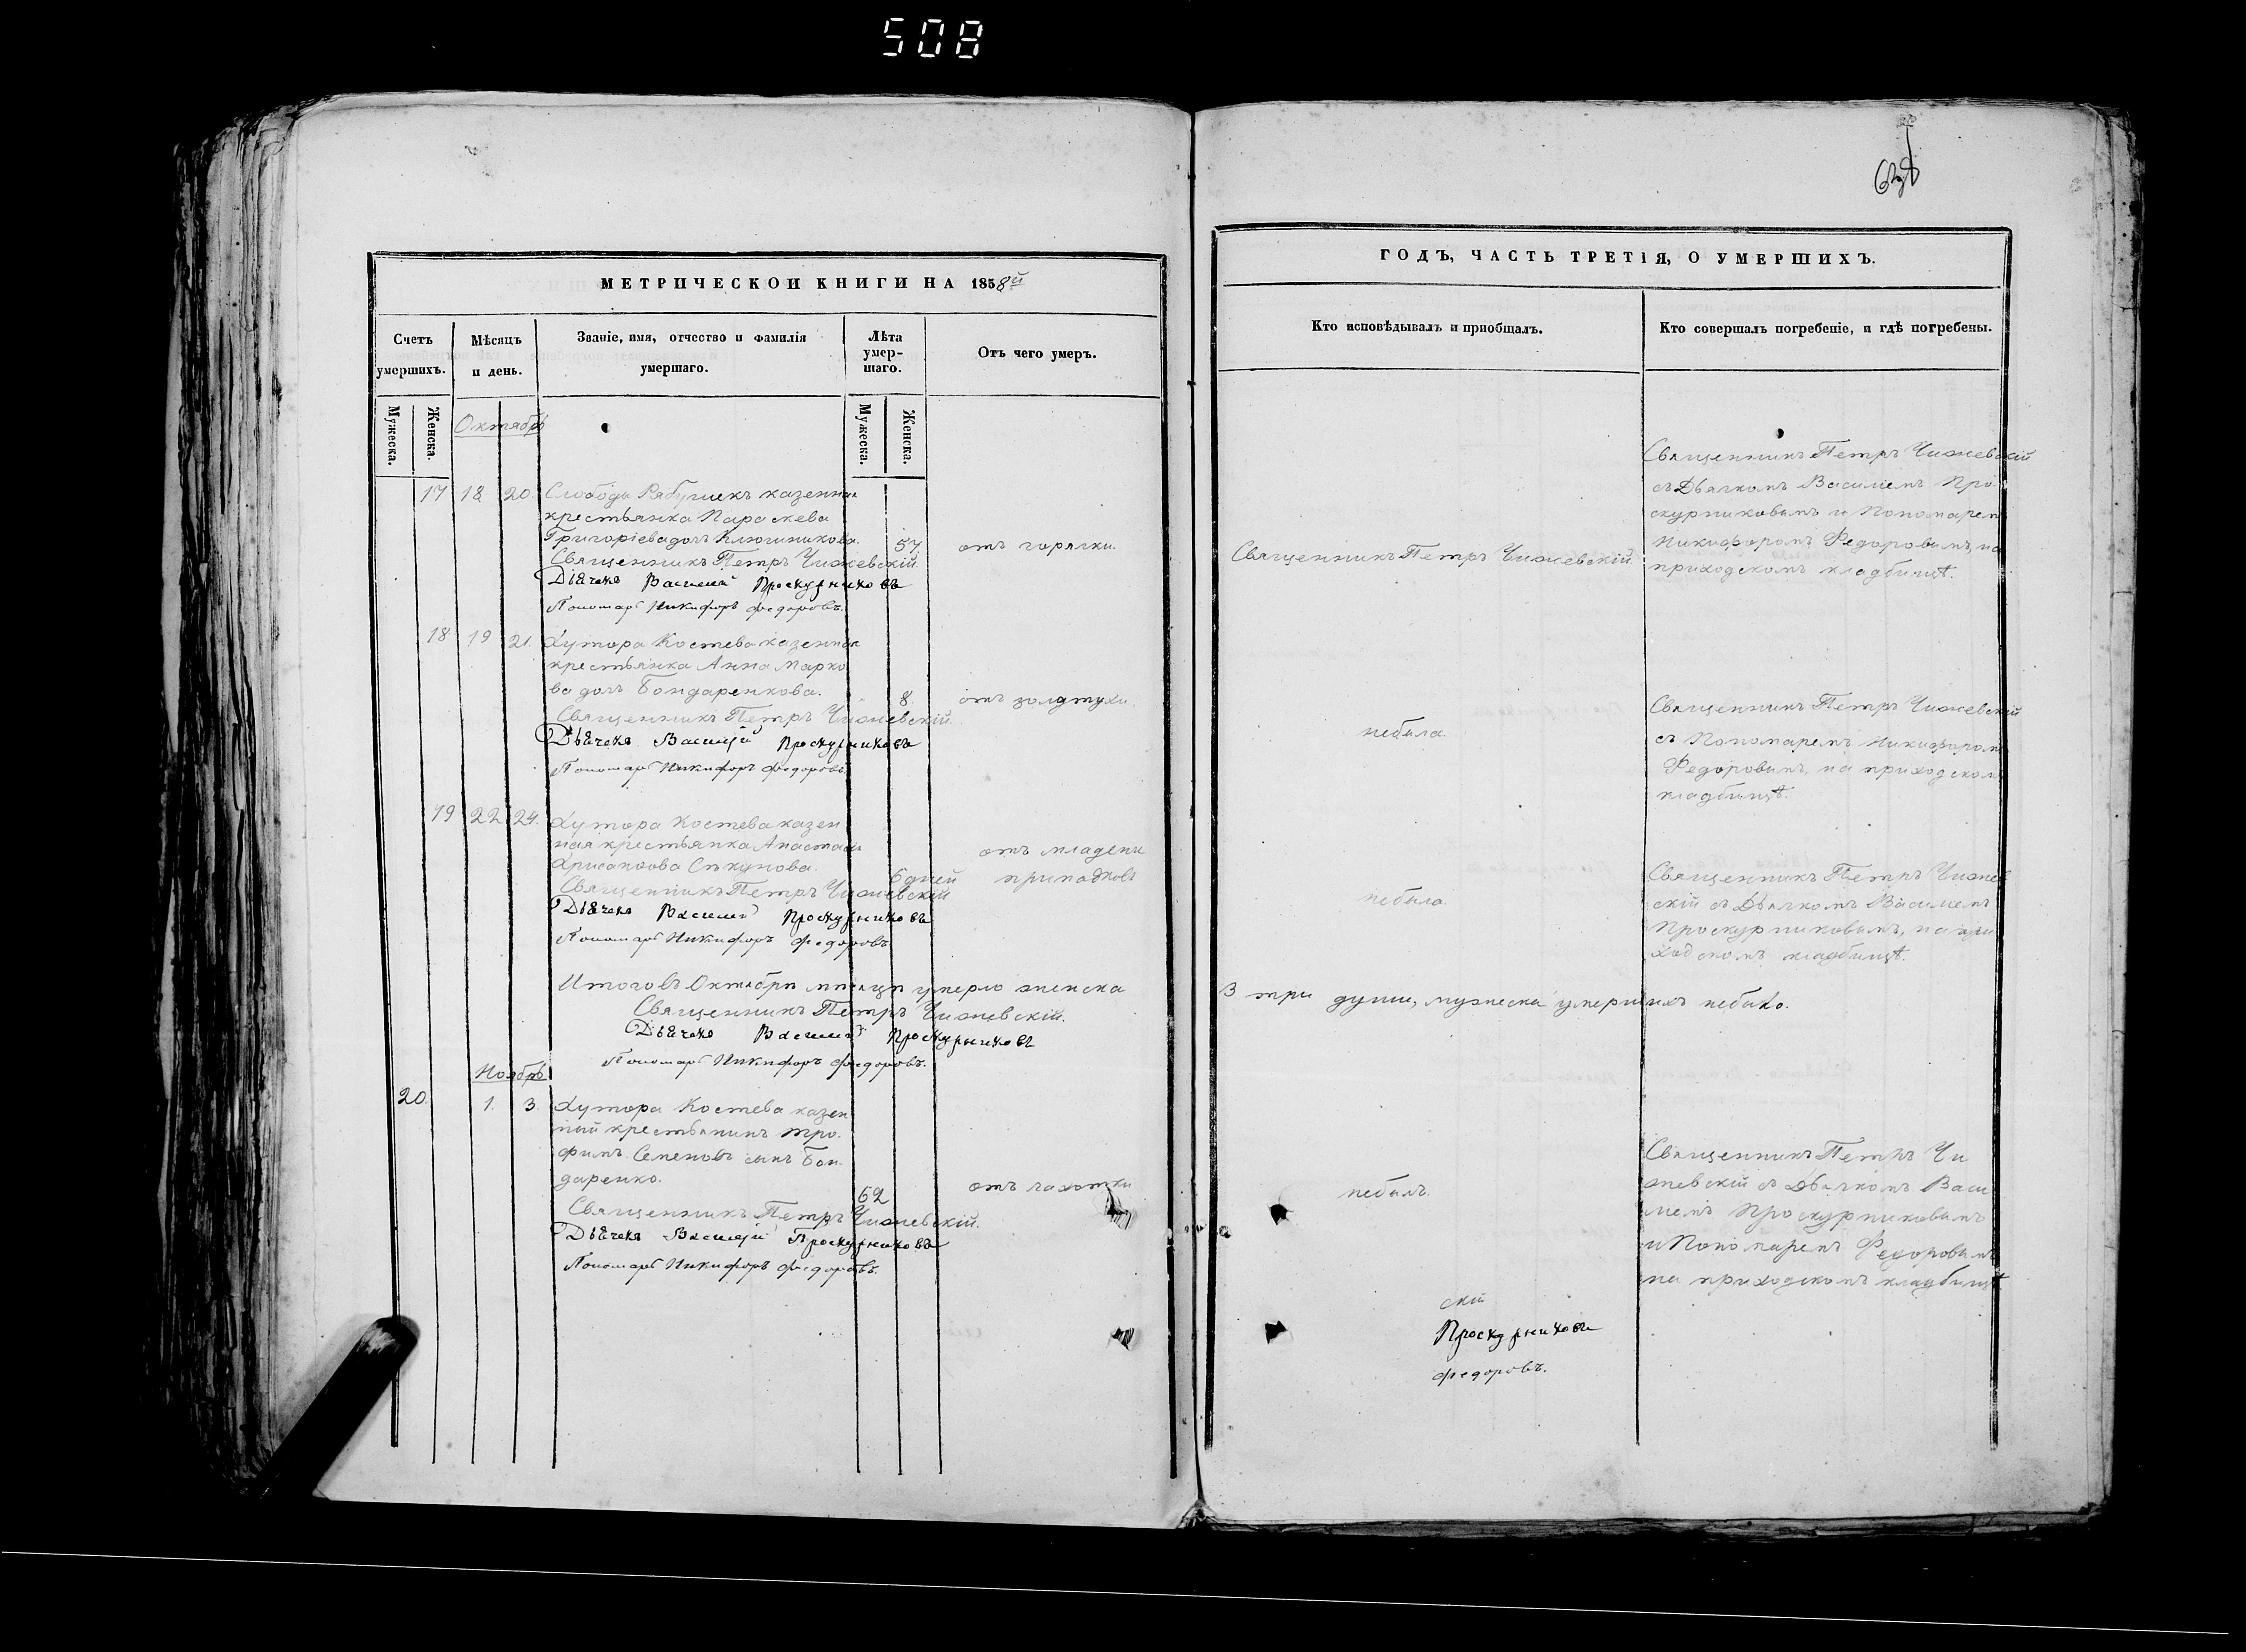 508
МЕТРИЧЕСКОЙ КНИГИ НА 1858й
Счетъ умершихъ.
Мѣсяцъ и день.
Званіе, имя, отчество и фамилія умершаго.
Лѣта умер-
шаго.
Отъ чего умеръ.
Мужеска.
Женска.
Мужеска.
Женска.
Октябрь
17 18 20. Слободы Рябушекъ казенная
крестьянка Параскева
Григоріева дочь Ключникова. 57 отъ горячки.
Священникъ Петръ Чижевскій.
Дьячекъ Василій Проскурниковъ
Пономарь Никифоръ Федоровъ.
18 19 21. Хутора Костева казенная
крестьянка Анна Марко
ва дочь Бондаренкова. 8. отъ золотухи.
Священникъ Петръ Чижевскій.
Дьячекъ Василій Проскурниковъ
Пономарь Никифоръ Федоровъ.
19 22 24. Хутора Костева казен
ная крестьянка Анастасія
Хрисанфова 6 дней отъ младенч припадковъ
Священникъ Петръ Чижевскій
Дьячекъ Василій Проскурниковъ
Пономарь Никифоръ Федоровъ
Итого въ Октябрѣ мѣсяцѣ умерло женска
Священникъ Петръ Чижевскій.
Дьячекъ Василій Проскурниковъ
Пономарь Никифоръ Федоровъ.
Ноябрь
20. 1. 3. Хутора Костева казен
ный крестьянинъ Тро
фимъ Семеновъ сынъ Бон
даренко. 62 отъ чахотки
Священникъ Петръ Чижевскій.
Дьячекъ Василій Проскурниковъ
Пономарь Никифоръ Федоровъ.
ГОДЪ, ЧАСТЬ ТРЕТІЯ, О УМЕРШИХЪ.
Кто исповѣдывалъ и приобщалъ.
Кто совершалъ погребеніе, и гдѣ погребены.
Священникъ Петръ Чижевскій.
Священникъ Петръ Чижевскій
съ Дьячкомъ Василіемъ Про
скурниковымъ и Пономарем
Никифоромъ Федоровымъ, на
приходскомъ кладбищѣ.
небыла.
Священникъ Петръ Чижевскій
съ Пономаремъ Никифором
Федоровымъ, на приходском
кладбищѣ.
небыла.
Священникъ Петръ Чижев
скій съ Дьячкомъ Василіемъ
Проскурниковымъ, на при
ходскомъ кладбищѣ.
3 три души, мужеска умершихъ небыло.
небылъ.
Священникъ Петръ Чи
жевскій съ Дьячкомъ Васи
ліемъ Проскурниковымъ
и Пономаремъ Федоровымъ
на приходскомъ кладбищѣ
скій
Проскурниковъ
Федоровъ.